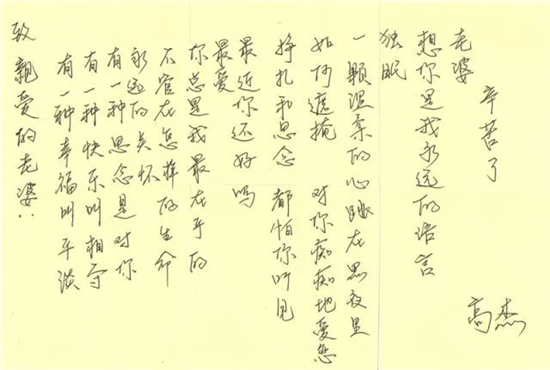 致親爱的老婆:
有一种幸福叫平淡
有一种快乐叫相守
有一种思念是对你
永远的关怀
不管在怎样的生命
你总是我最在乎的
最爱
最近你还好吗
挣扎和思念 都怕你听见
如何遮掩 对你痴痴地爱恋
一颗温柔的心跳在黑夜里
独眠
想你是我永远的语言
老婆
辛苦了
高杰